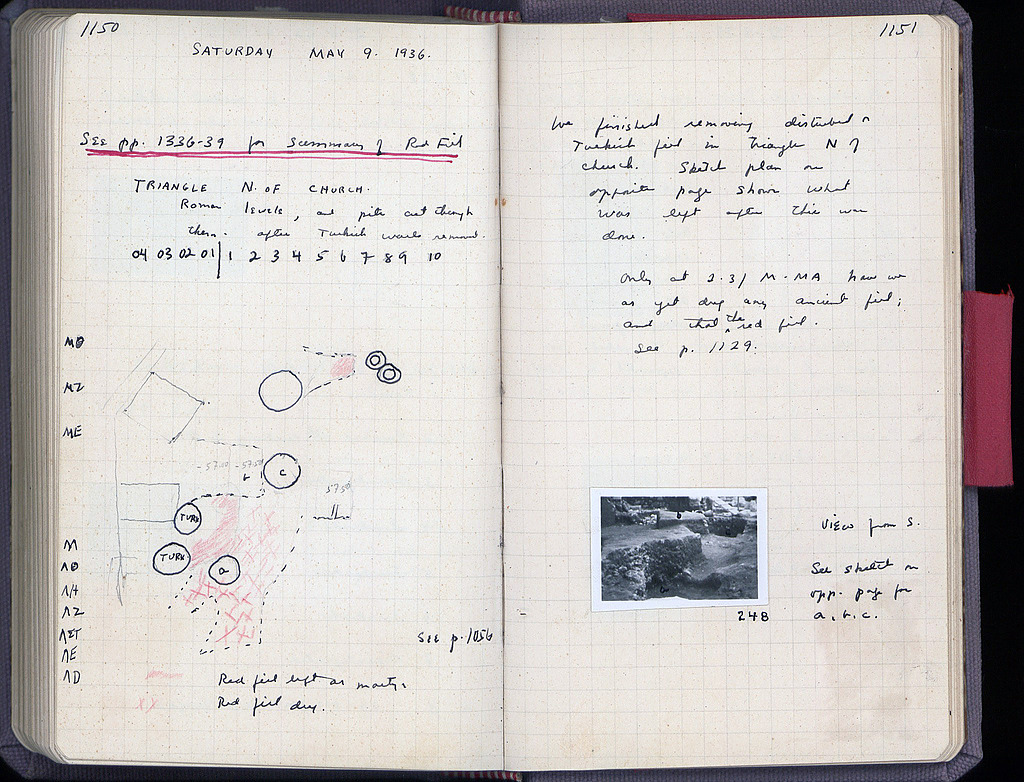 1150
SATURDAY MAY 9. 1936.
See pp. 1336-39 for Summary of Red Fill
TRIANGLE N. OF CHURCH.
Roman levels, and pits cut through
them. after Turkish walls removed.
04 03 02 01 | 1 2 3 4 5 6 7 8 9 10
ME
-5750 -5750
b
C
5750
TURK
M
TURK
a
See p. 1056
Red fill left as
XX Red fill dug.
1151
We finished removing disturbed
Turkish fill in triangle N of
church. Sketch plan on
opposite page shows what
was left after this was
done.
Only at 2-3/M-MA have we
as yet dug any ancient fill;
and that the red fill.
See p. 1129.
b
a
248
View from S.
See sketch on
opp. page for
a, b, c.